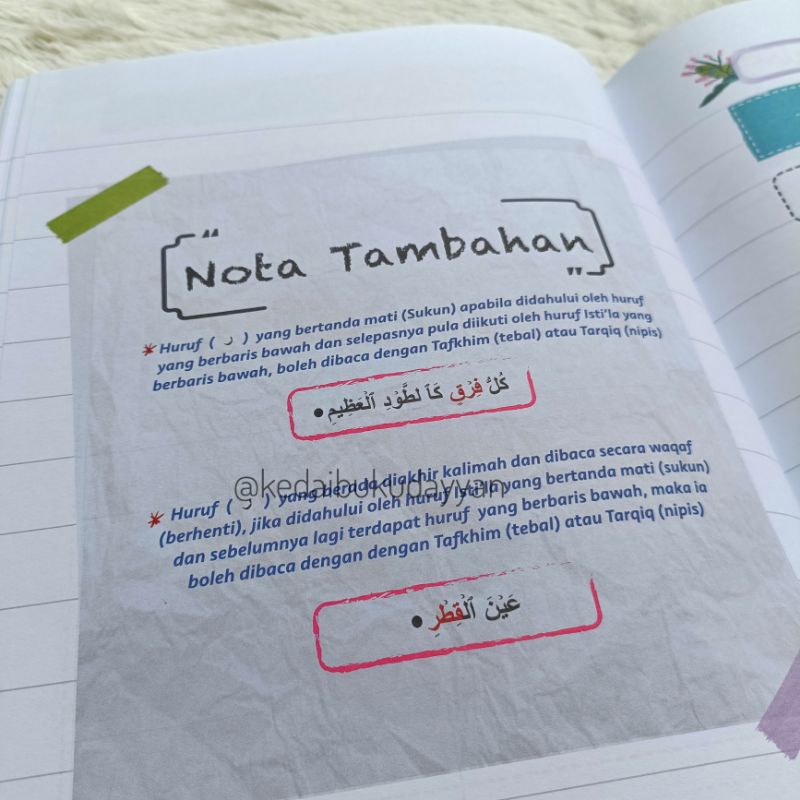 “
Nota Tambahan
”
Huruf ( ر ) yang bertanda mati (Sukun) apabila didahului oleh huruf
yang berbaris bawah dan selepasnya pula diikuti oleh huruf Isti'la yang
berbaris bawah, boleh dibaca dengan Tafkhim (tebal) atau Tarqiq (nipis)
كُلُّ فِرْقٍ كَٱلطَّوْدِ ٱلْعَظِيمِ
@kedaibukudayyan
Huruf ( ر ) yang berada diakhir kalimah dan dibaca secara waqaf
(berhenti), jika didahului oleh huruf Isti'la yang bertanda mati (sukun)
dan sebelumnya lagi terdapat huruf yang berbaris bawah, maka ia
boleh dibaca dengan dengan Tafkhim (tebal) atau Tarqiq (nipis)
عَيْنَ ٱلْقِطْرِ